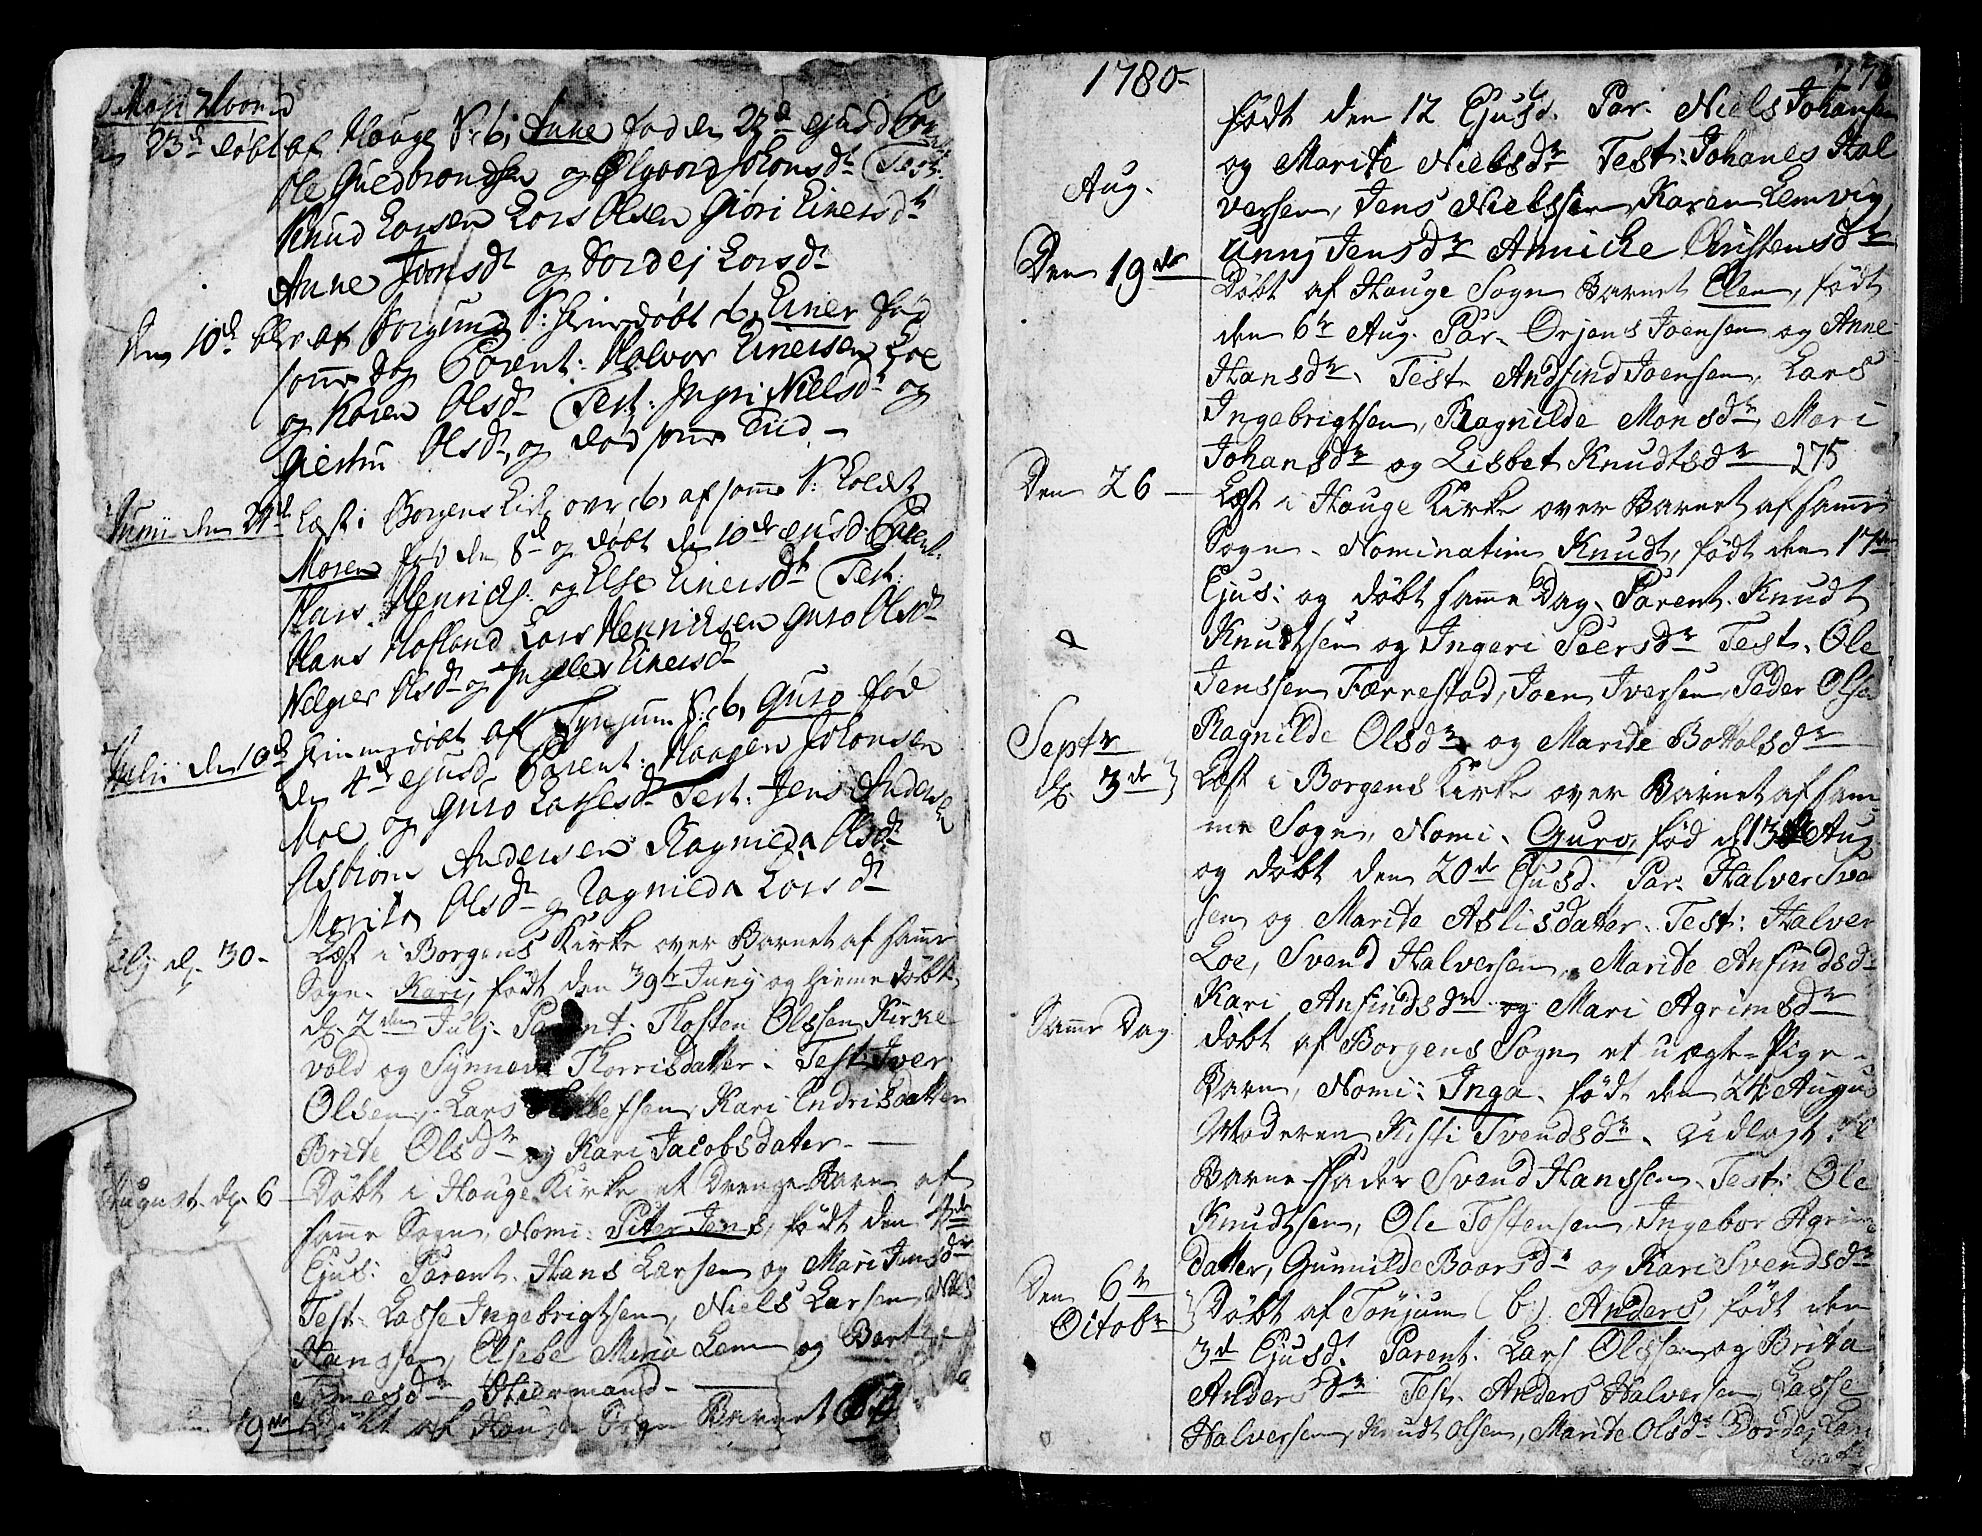 Maji Maaned
23d døbt af Hauge S: b, Anne fød den 22d ejusd
Ole Guldbrandsen og Johansdt Test:
Knud Larsen Lars Olsen Giøri Einersdt
Anne Joensdt og Dordej Larsdt
Den 10d blev af Borgund S: hiemdøbt b, Einer fød
samme dag Parent: Halvor Einersen Loe
og Karen Olsdt Test: Ingri Nielsdt og
Giertru Olsdt, og død samme Tiid —
Junii den 24d Læst i Borgens Kirke over b, af samme S: kaldet
Maren fød den 8d og døbt den 10de ejusd Parent:
Lars Henrichs: og Else Einersdt Test:
Hans Hofland Lars Henrichsen Guro Olsdt
Olsdt og Einersdt
Julii den 10d hiemmedøbt af Tynjum S: b, Guro fød
den 4d ejusd Parent: Haagen Johansen
Moe og Guro Lassesdt Test: Jens Andersen
Asbiørn Andersen Ragnilda Olsdt
Marita Olsdt og Ragnilda Larsdt
July d. 30. Læst i Borgens Kirke over Barnet af samme
Sogn. Kari, født den 39te Juny og hiemedøbt
d. 2den Julj. Parent. Thosten Olssen Kirke
vold og Synneva Thorrisdatter. Test: Iver
Olsen, Lars Kari Endrisdatter
Brite Olsdr og Kari Jacobsdatter. —
August. d. 6 Døbt i Hauge Kirke et Drenge Barn af
samme Sogn, Nomi: Piter Jens, født den 4de
Ejus: Parent. Hans Larsen og Mari Jensdr
Test. Lasse Ingebrigtsen, Niels Larsen, Niels
Hanssen, Elsebe Maria Lem og
Stiermand. —
19de Døbt af Hauge Sogn Barnet
1780.
født den 12 Ejusd. Par. Niels Johansen
og Marite Nielsdr Test: Johanes Hal
versen, Jens Nielssen, Karen Lemvig,
Anny Jensdr Annicke Christensdr
Aug.
Den 19de Døbt af Hauge Sogn Barnet Elen, født
den 6te Aug. Par. Ørjens Joensen og Anne
Hansdr. Test. Andfind Joensen, Lars
Ingebrigtsen, Ragnilde Monsdr, Mari
Johansdr og Lisbet Knudtsdr 275
Den 26 — Læst i Hauge Kirke over Barnet af samme
Sogn. Nominatim Knudt, født den 17de
Ejus: og døbt samme Dag. Parent. Knudt
Knudtsen og Ingeri Peersdr Test. Ole
Jenssen Færrestad, Joen Iversen, Peder Olsen
Ragnilde Olsdr og Marite Bottolsdr
Septr
d. 3de Læst i Borgens Kirke over Barnet af sam-
me Sogn, Nomi. Guro, fød d. 13de Aug
og døbt den 20de Ejusd. Par. Halver Iva
sen og Marite Aslisdatter. Test: Halver
Loe, Svend Halversen, Marite Anfindsdr
Kari Anfindsdr og Mari Agrimsdr
Samme Dag. døbt af Borgens Sogn et uægte Pige-
Barn, Nomi: Inga, født den 24 Augus
Moderen Kisti Svendsdr. Udlagt til
Barne Fader Svend Hanssen. Test: Ole
Knudtsen, Ole Tostensen, Ingebor Agrims
datter, Gunnilde Baarsdr og Kari Svendsdr
Den 6te
Octobr Døbt af Tönjum (b:) Anders, født den
3d Ejusd. Parent. Lars Olssen og Brita
Andersdr Test. Anders Halversen, Lasse
Halversen, Knudt Olsen, Marite Olsdr Dordej Lars